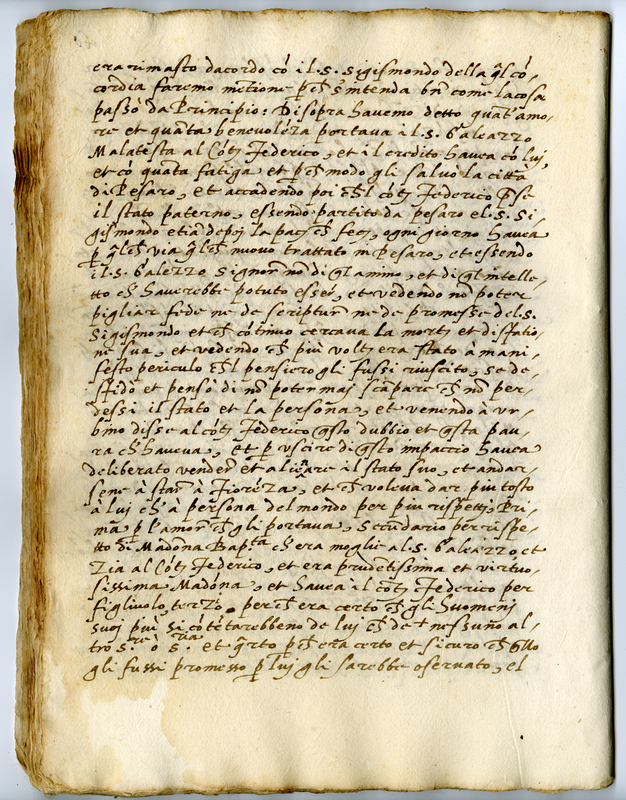 era rimasto dacordo có il .s. sigismondo della q̃l có,
cordia faremo mētione p ch̃ s'intenda bñ come la cosa
passò da Principio: Disopra havemo detto quāt'amo,
re et quāta benevolēza portava il .s. Galeazzo
Malatesta al Cóte Federico, et il credito havea có lui,
et có quāta fatiga et p ch̃ modo gli salvò la città
di Pesaro, et accadendo poi ch̃l cóte Federico p̃se
il stato paterno, essendo partito da pesaro el .s. si,
gismondo etiā depoi la pace ch̃ fece, ogni giorno havea
p q̃lch̃ via q̃lch̃ nuovo trattato in Pesaro, et essendo
il .s. Galeazzo signor nō di q̃l animo, et di q̃l intelle,
tto ch̃ haverebbe potuto esser, et vedendo nō poter
pigliar fede ne de scripture ne de promesse del .s.
Sigismondo et ch̃ cótinuo cercava la morte et disfatio,
ne sua, et vedendo ch̃ più volte era stato à mani,
festo periculo ch̃l pensiero gli fussi riuscito, se de,
sfidò et pensò di nō poter mai scāpare ch̃ nō per,
dessi il stato et la persona, et venendo à vr,
bino disse al cóte Federico q̃sto dubbio et q̃sta pau,
ra ch̃ haveva, et p vscire di q̃sto impaccio havea
deliberato vender et alienare il stato suo, et andar,
sene à star à Fiorēza, et ch̃ voleva dar piu tosto
à lui ch̃ à persona del mondo per piu rispetti, Pri,
ma p l'amor ch̃ gli portava, secundario per rispe,
tto di Madōna Bap.ta ch̃ era moglie al .s. Galeazzo, et
Zia al Cóte Federico, et era prudetissima et virtuo,
sissima Madōna, et havea il cóte Federico per
figlivolo, terzo perch̃ era certo ch̃ gli huomeni
suoi più si cótētarebbeno de lui ch̃ de nessuno al,
tro s.re ò s.ria et q̃rto p ch̃ era certo et sicuro ch̃ q̃llo
gli fussi promesso p lui gli sarebbe oservato, el